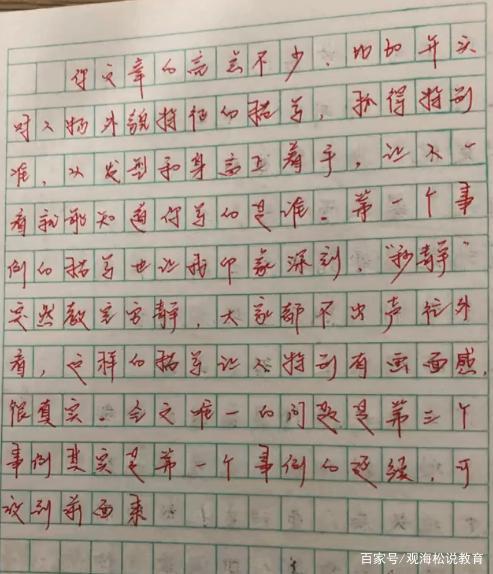 你文章的亮点不少，比如开头
对人物外貌特征的描写，抓得特别
准，从发型和身高上着手，让人一
看就能知道你写的是谁。第一个事
例的描写也让我印象深刻，“秒静”
突然教室安静，大家都不出声往外
看，这样的描写让人特别有画面感，
很真实。全文唯一的问题是第三个
事例其实是第一个事例的延续，可
放到前面来
百家号/观海松说教育